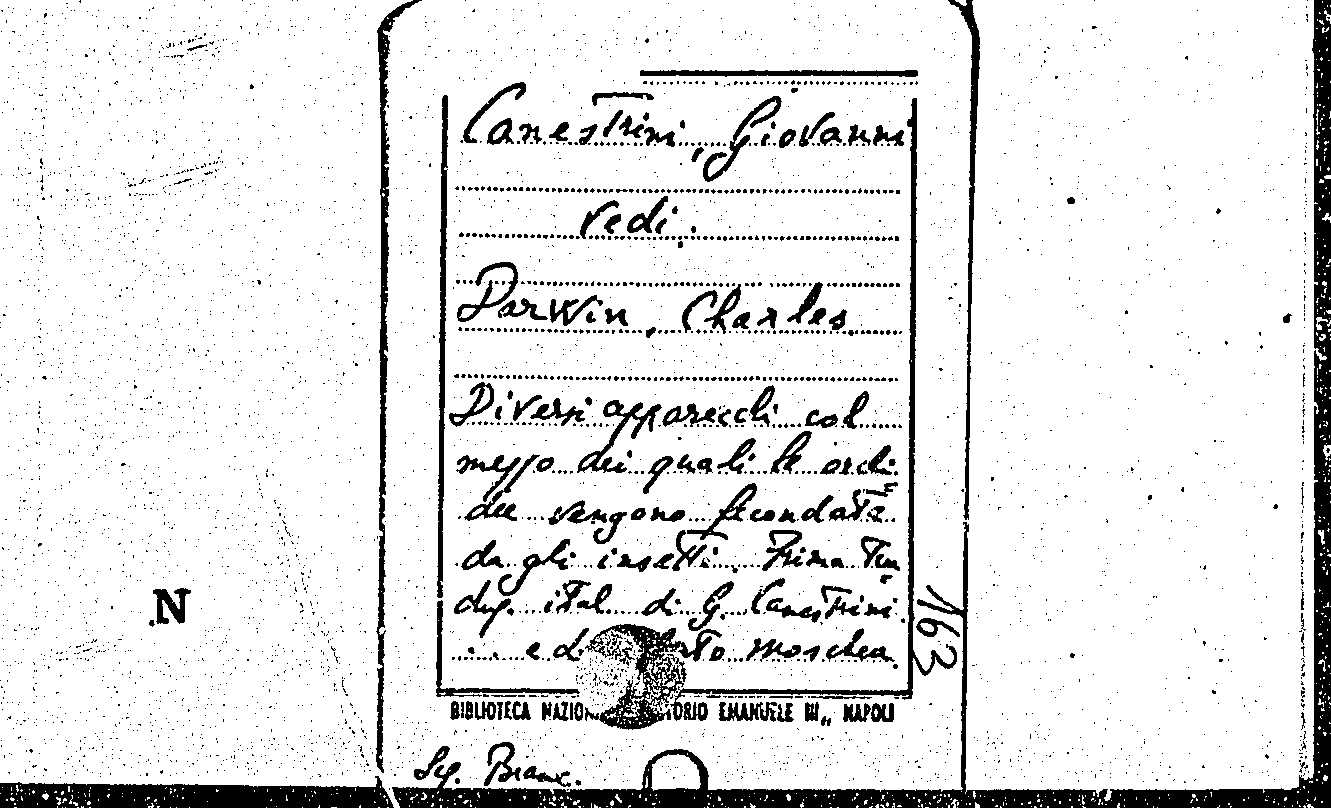 Canestrini, Giovanni
vedi:
Darwin, Charles
Diversi apparecchi col
mezzo dei quali le orchi-
dee vengono fecondate
da gli insetti. Prima tra-
duz. ital. di G. Canestrini
... e di Moschen
163
N
BIBLIOTECA EMANUELE III,, NAPOLI
Branc.